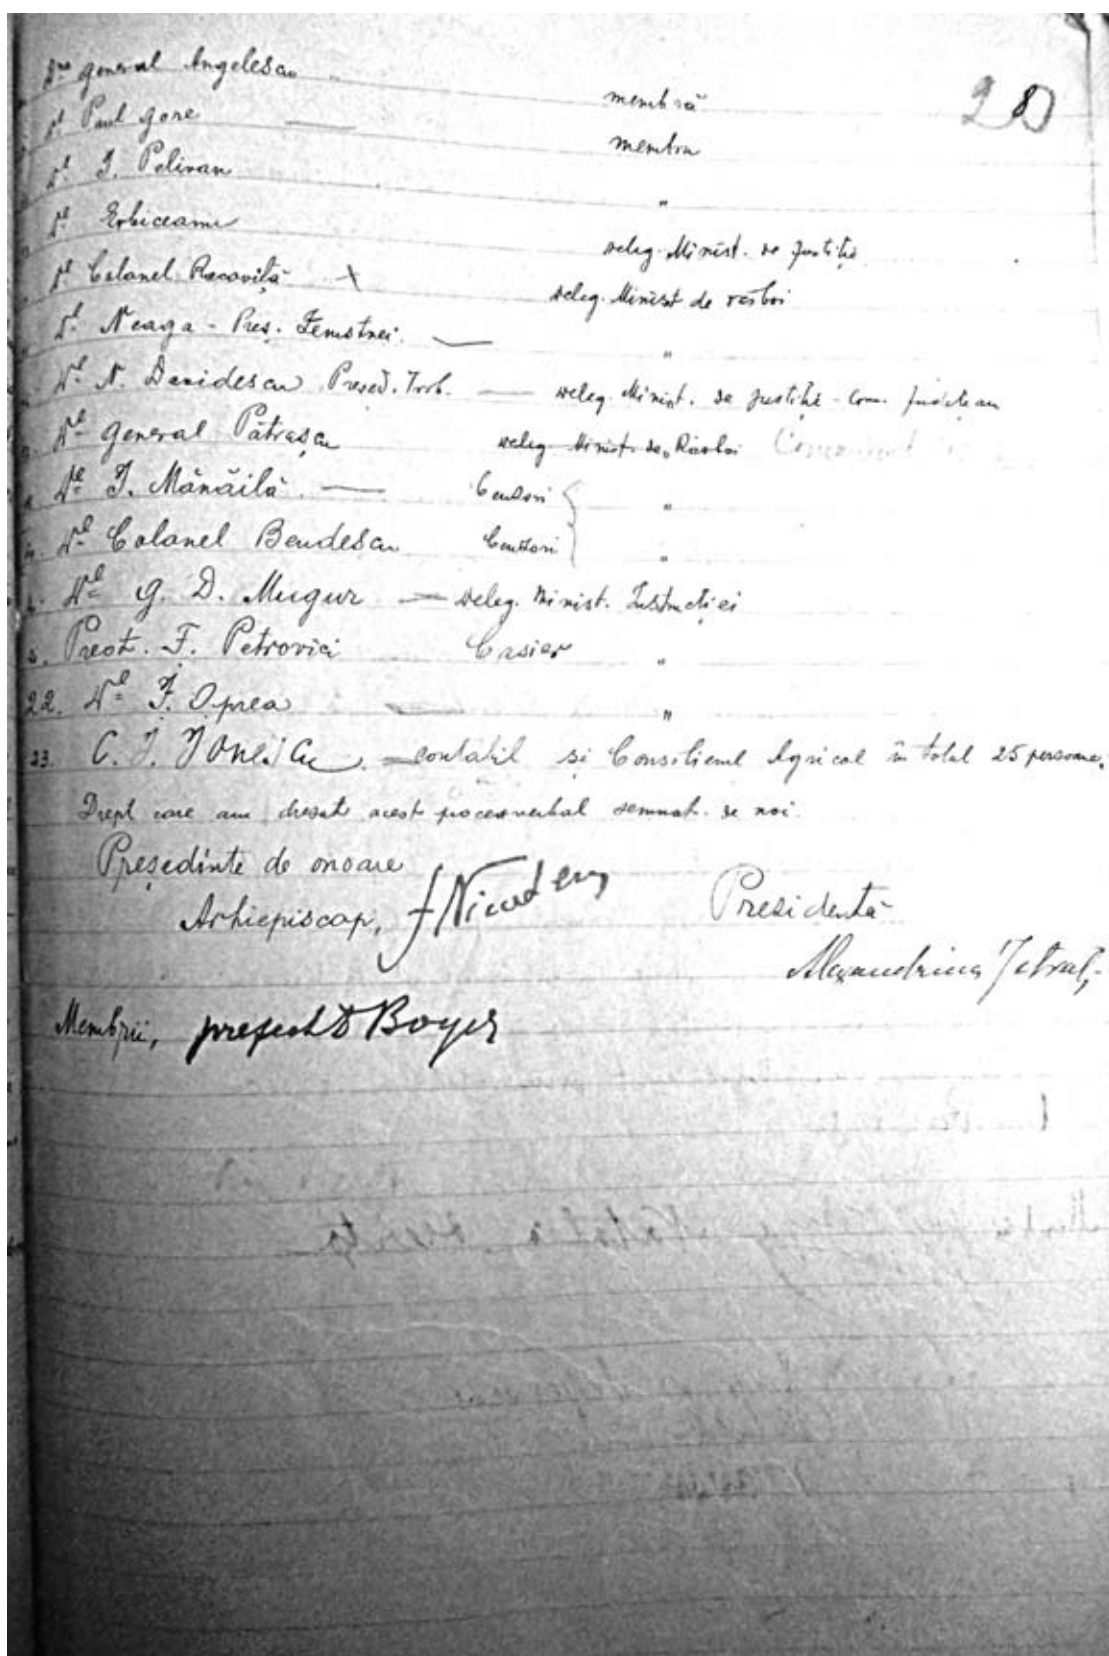 Dna general Angelescu membră
Dl Paul Gore — membru
Dl I. Pelivan "
Dl Erbiceanu deleg. Minist. de Justiție
Dl Colonel Racoviță + deleg. Minist de răsboi
Dl Neaga - Preș. Zemstvei. — "
Dl N. Davidescu Presed. Trib. — deleg. Minist. de Justiție - Com. Județean
Dl General Pătrașcu deleg Minist. de Răsboi
Dl I. Mănăilă — Cenzori { "
Dl Colonel Bendescu Cenzori "
Dl G. D. Mugur — deleg. Minist. Instrucției
Preot. F. Petrovici Casier "
22. Dl I. Oprea — "
23. C. I. Ionescu. — contabil și Consilierul Agricol în total 25 persoane.
Drept care am dresat acest procesverbal semnat de noi.
Președinte de onoare
Arhiepiscop, Presidentă
Alexandrina
Membrii, prefect